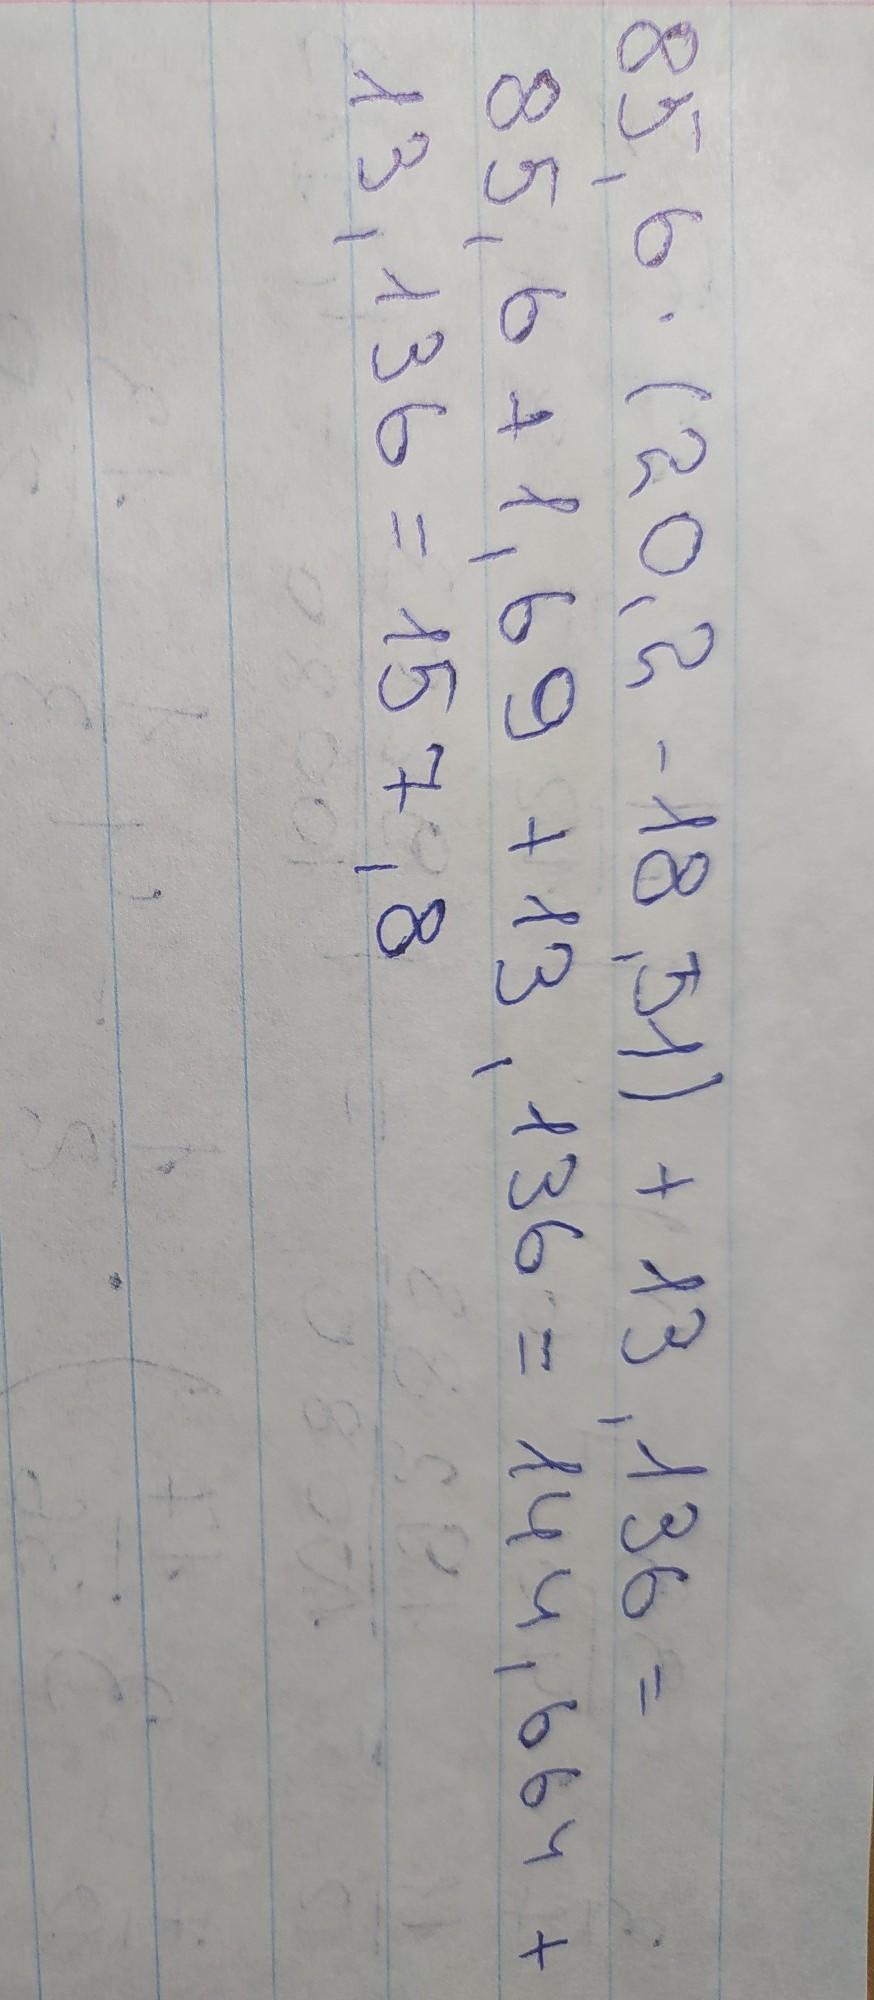 85,6 · (20,2 - 18,51) + 13,136 =
85,6 + 1,69 + 13,136 = 144,664 +
13,136 = 157,8